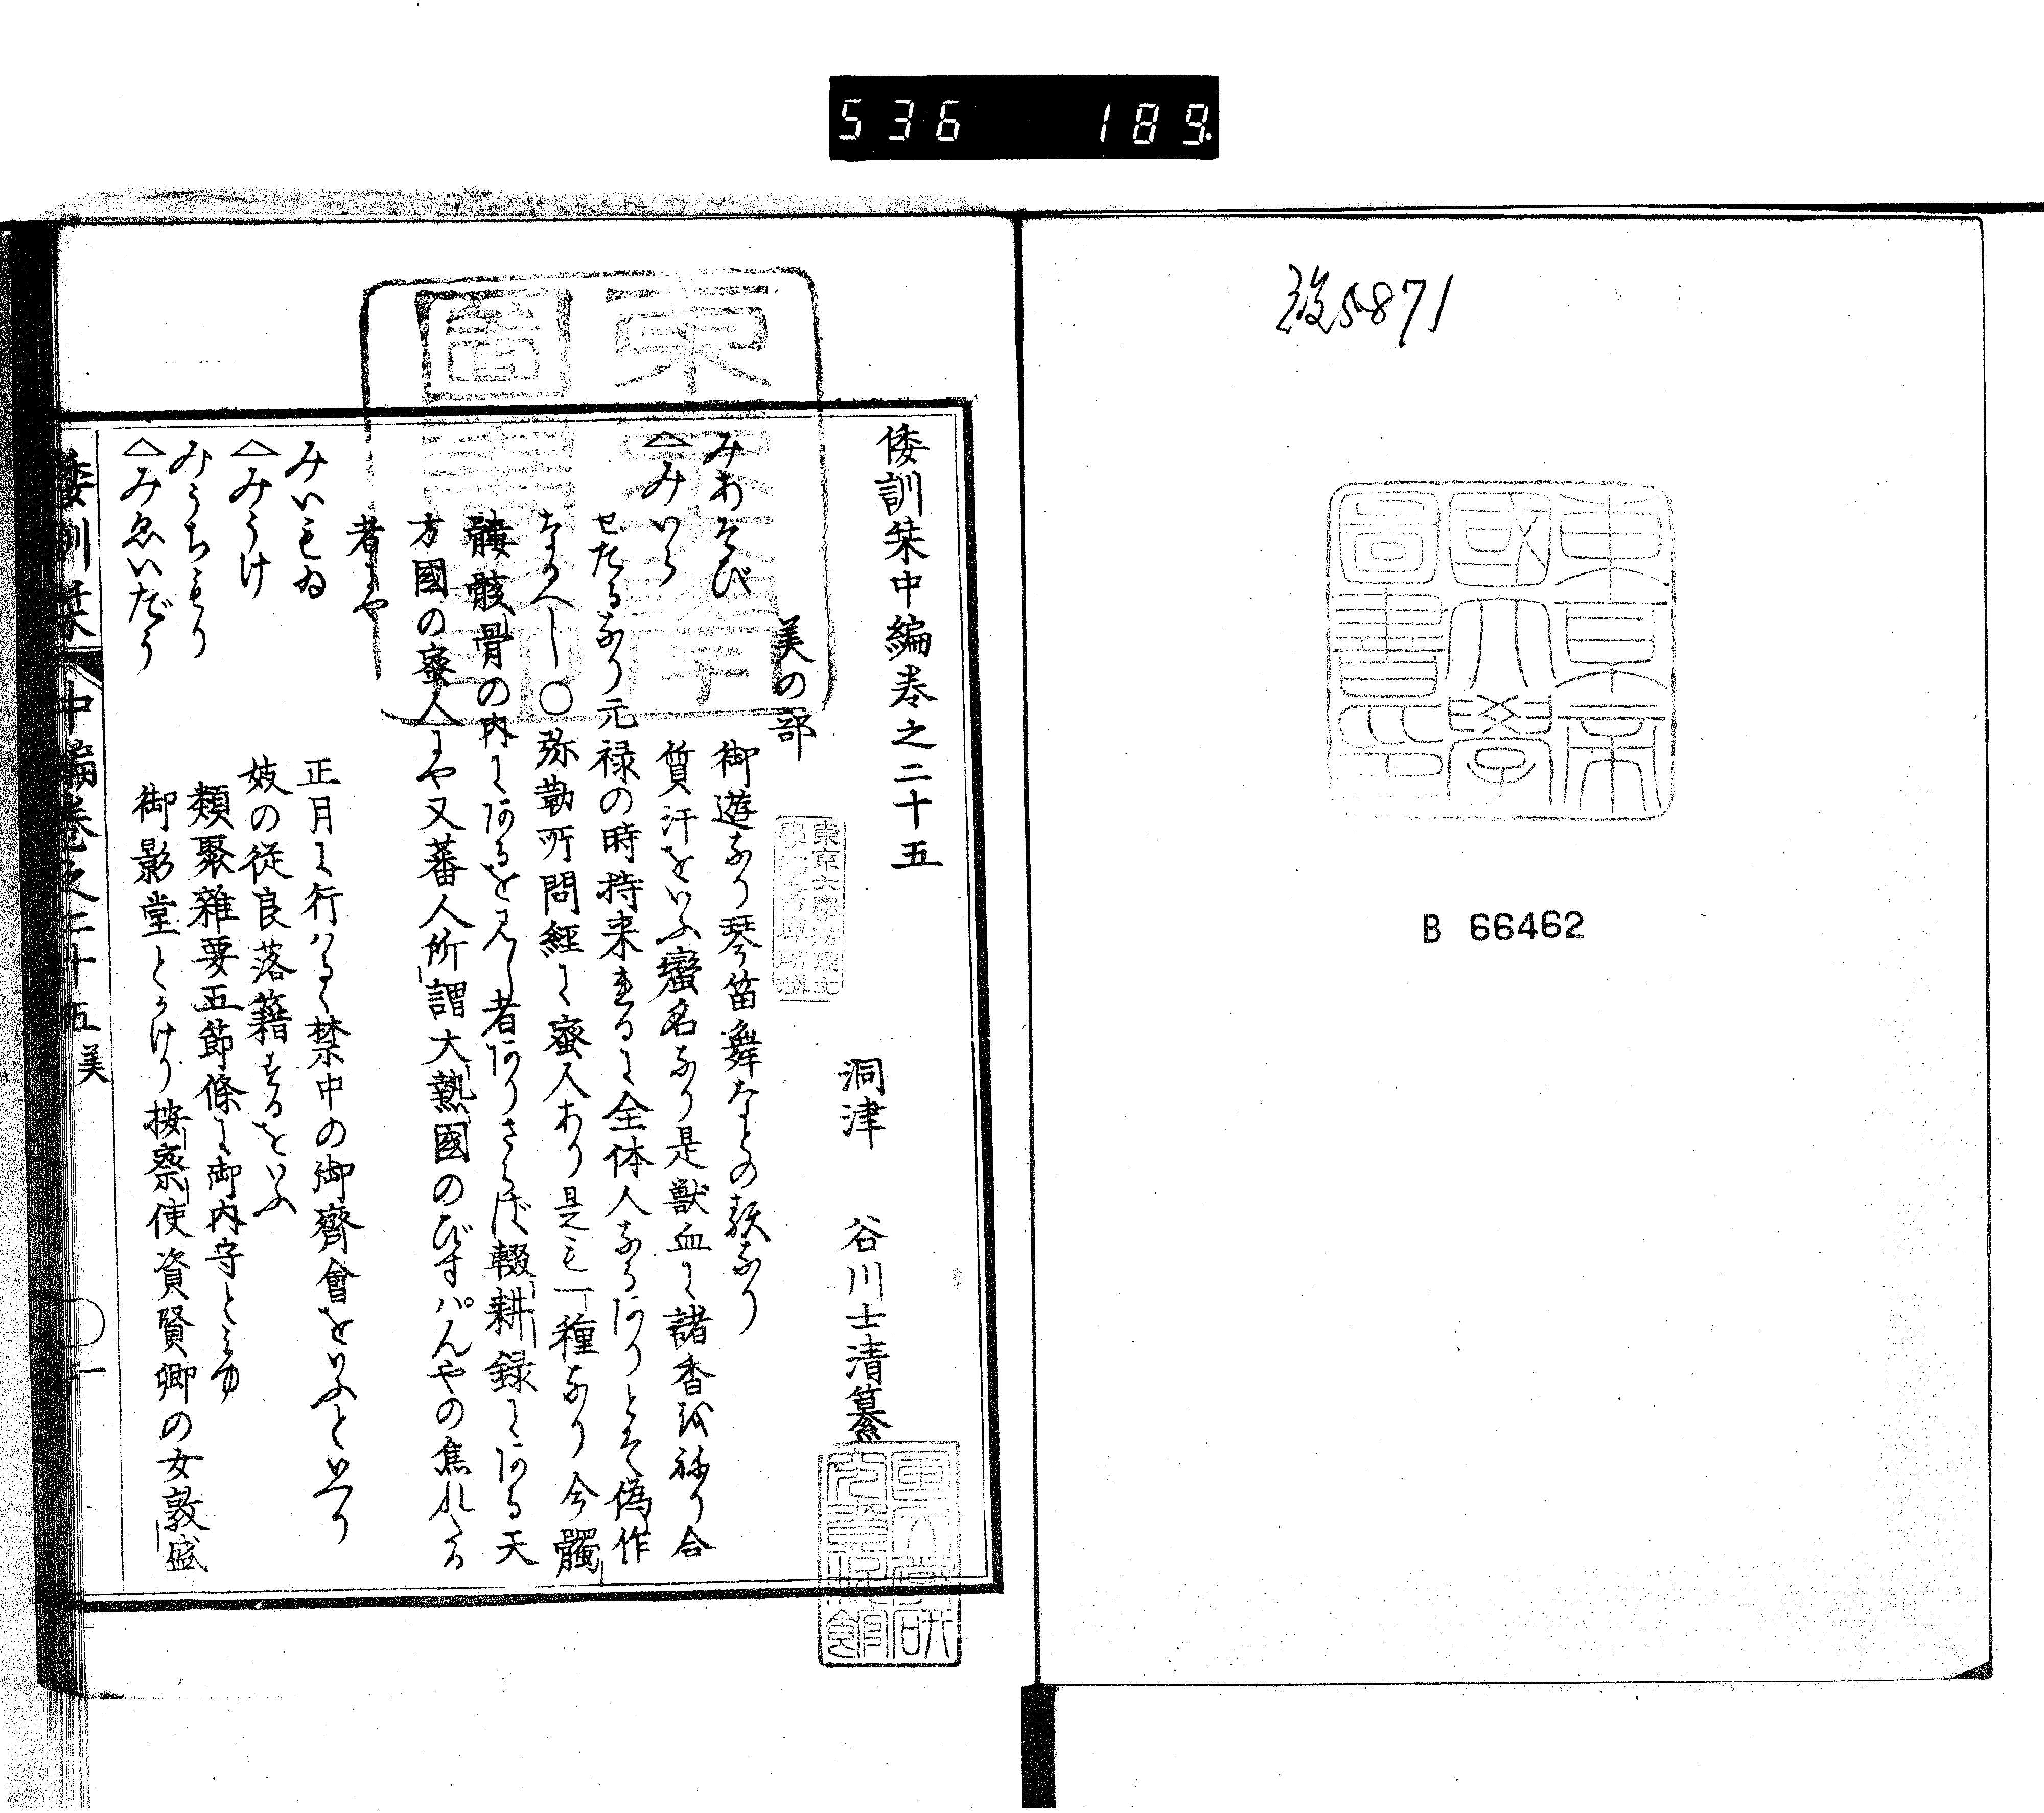 536 189.
5871
東京帝
國大學
圖書印
B 66462
倭訓栞中編巻之二十五
洞津 谷川士清纂
美の部
みあそび 御遊なり琴笛舞なとの類なり
〈みいら 質汗をいふ蠻名なり是獣血に諸香を和り合
せたるなり元禄の時持来れるに全体人なるありとそ偽作
なるへし〇弥勒所問經に蜜人あり是も一種なり今髑
髏骸骨の内にあるを見し者ありさらば輟耕録にある天
方國の蜜人にや又蕃人所謂大熱國のびすぱんやの焦れたる
者にや
みいもゐ 正月に行はるゝ禁中の御齋會をいふといへり
〈みうけ 妓の従良落籍するをいふ
みうちもり 類聚雜要五節條に御内守とみゆ
〈みゑいだう 御影堂とかけり按察使資賢卿の女敦盛
倭訓栞 中編巻之二十五 美 〇一